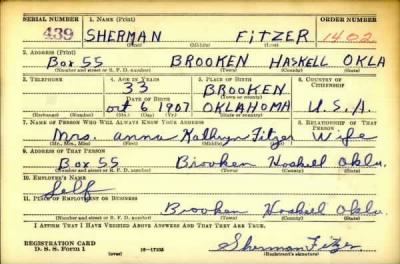 SERIAL NUMBER 1. NAME (Print) ORDER NUMBER
439 SHERMAN FiTZER 1402
(First) (Middle) (Last)
2. ADDRESS (Print)
Box 55 BROOKEN HASKELL OKLA
(Number and street or R. F. D. number) (Town) (County) (State)
3. TELEPHONE 4. AGE IN YEARS 5. PLACE OF BIRTH 6. COUNTRY OF CITIZENSHIP
33 BROOKEN
DATE OF BIRTH (Town or county)
Oct 6 1907 OKLAHOMA U.S.A.
(Exchange) (Number) (Mo.) (Day) (Yr.) (State or country)
7. NAME OF PERSON WHO WILL ALWAYS KNOW YOUR ADDRESS 8. RELATIONSHIP OF THAT PERSON
Mrs. Anna Kathryn Fitzer Wife
(Mr., Mrs., Miss) (First) (Middle) (Last)
9. ADDRESS OF THAT PERSON
Box 55 Brooken Haskell Okla.
(Number and street or R. F. D. number) (Town) (County) (State)
10. EMPLOYER'S NAME
Self
11. PLACE OF EMPLOYMENT OR BUSINESS
Brooken Haskell Okla.
(Number and street or R. F. D. number) (Town) (County) (State)
I AFFIRM THAT I HAVE VERIFIED ABOVE ANSWERS AND THAT THEY ARE TRUE.
REGISTRATION CARD
D. S. S. Form 1 (over) 16-17105 Sherman Fitzer
(Registrant's signature)